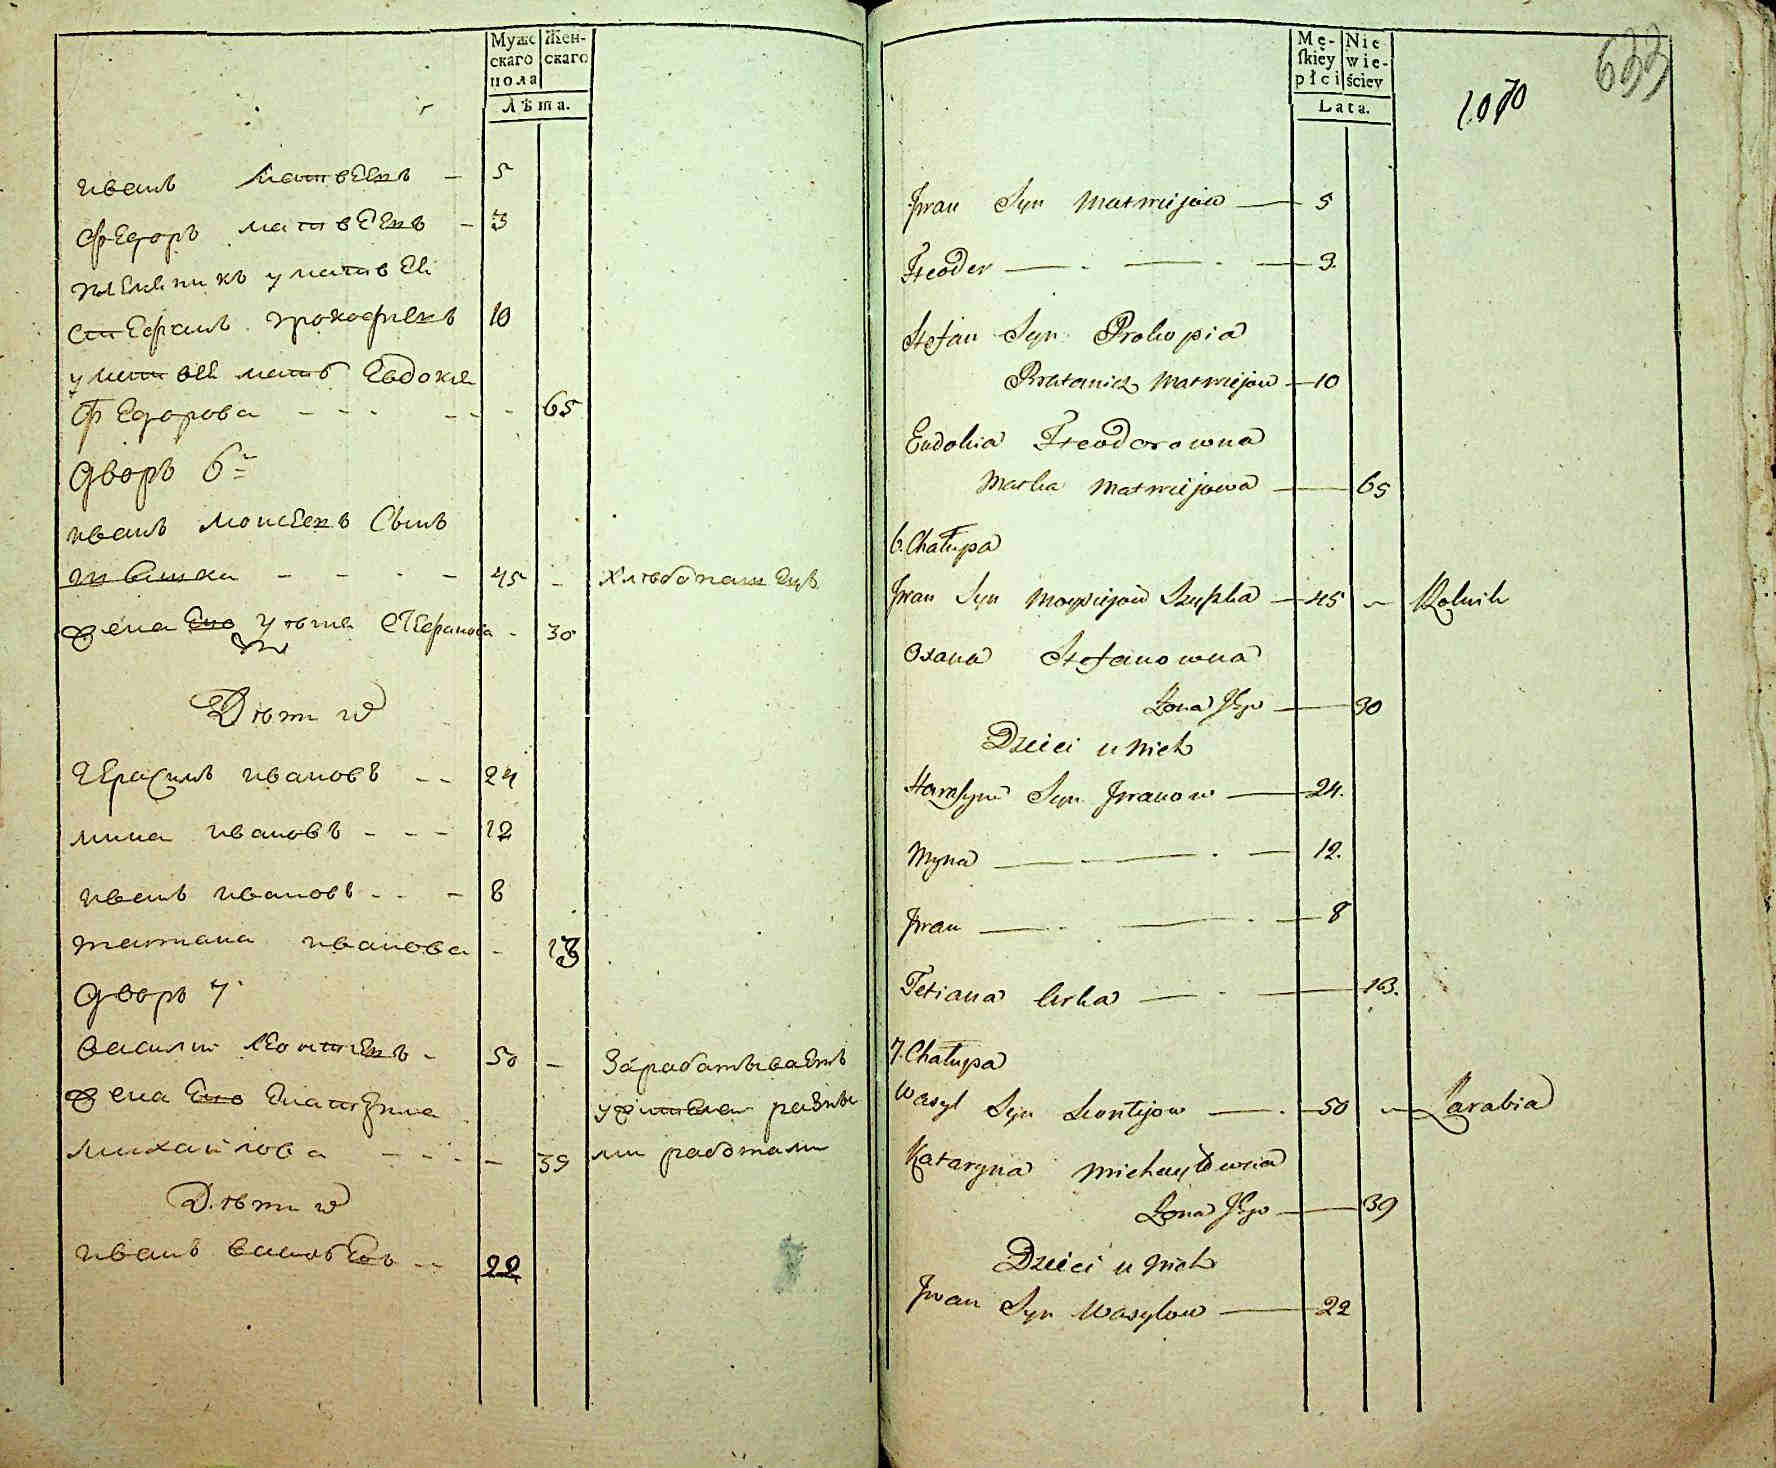 Мужс
скаго
пола
Жен-
скаго
Лѣта.
иванъ Матвеевъ - 5
Федоръ матвеевъ - 3
племникъ у матвеи
Стефанъ прокофиевъ 10
у матвеи матъ Евдокия
Федорова - - - - - - 65
Дворъ 6
иванъ моисеевъ Сынъ
45 - хлебопашецъ
жена Ево Стефанова - 30
Дѣти
Герасимъ ивановъ - - 24
мина ивановъ - - - 12
иванъ ивановъ - - - 8
татиана иванова - 13
Дворъ 7
василий леонтиевъ - 50 - Зарабатываетъ
жена Ево Екатерина разны
михайлова - - - - - 39 ми работами
Дѣти
иванъ василъевъ - - 22
Mę-
skiey
płci
Nie
wie-
ściey
Lata.
1070
633
Jwan Syn Matwiejow — 5
Fteodor — . — . — 3.
Stefan Syn Prokopia
Bratanicz Matwiejow — 10
Eudokia Fteodorowna
Matka Matwiejowa — 65
6. Chałupa
Jwan Syn Moysiejow Szuszka — 45 ~ Rolnik
Oxana Stefanowna
Żona Jego — 30
Dzieci u Nich
Harasym Syn Jwanow — 24.
Myna — — . — 12.
Jwan — . — . — 8
Tetiana Curka — . — 13.
7. Chałupa
Wasyl Syn Leontyow — . — 50 ~ Zarabia
Kataryna Michayłowna
Żona Jego — 39
Dzieci u Nich
Jwan Syn Wasylow — 22